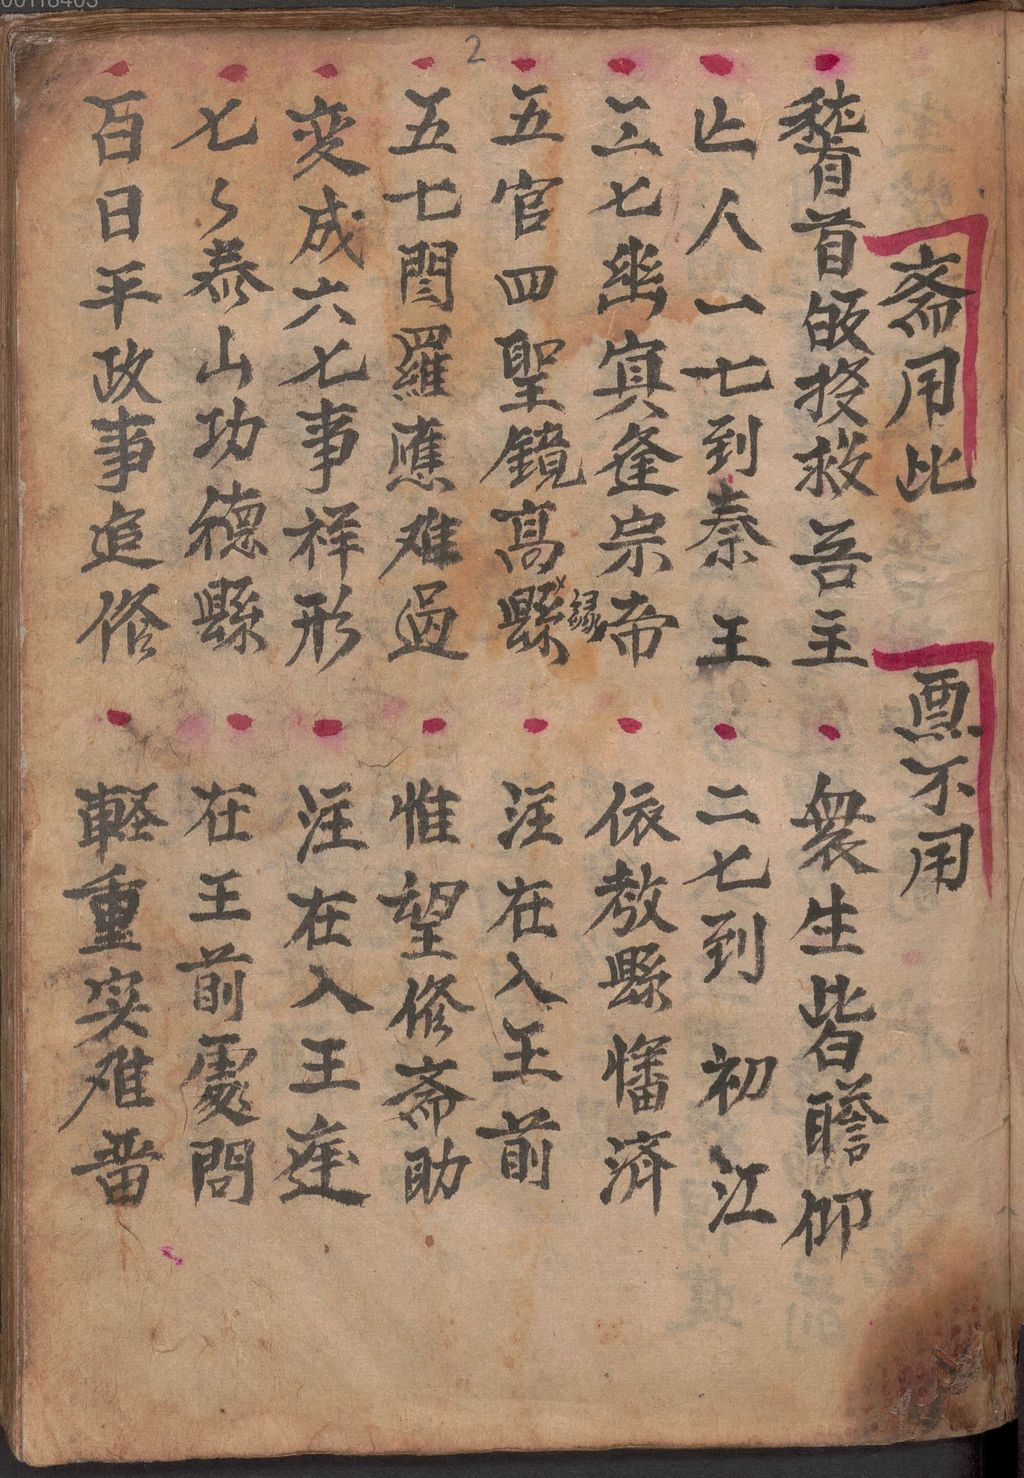 斋用比
㷧不用
稽首首皈投救吾主
衆生皆瞻仰
亡人一七到秦王
二七到初江
三七幽㝠逢宗帝
依教縣旛濟
五官四聖鏡高縣
縁
注在入王前
五七閻羅應难過
惟望修斋助
变成六七事祥形
注在入王莚
七々泰山功德縣
在王前䖏問
百日平政事追修
軽重实难畨
2